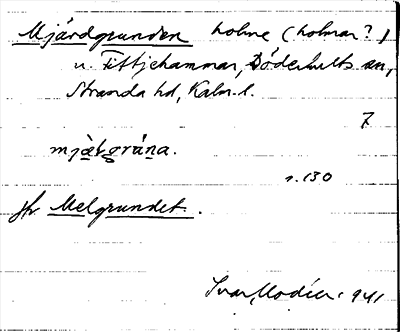 Mjärdgrunden holme (holmar?)
u. Fittjehammar, Döderhults sn,
Stranda hd, Kalm. l.
7
mjæ̀tgrúna.
s. 130
jfr Melgrundet.
Ivar Modéer 941